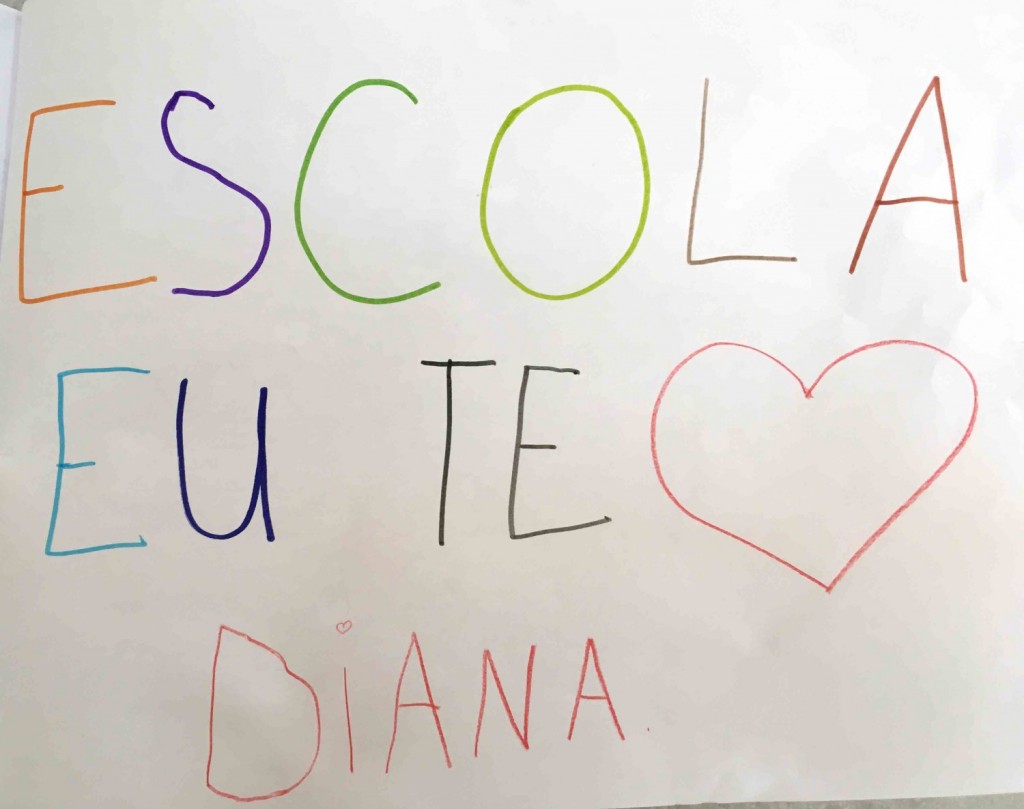 ESCOLA
EU TE ♡
DiANA